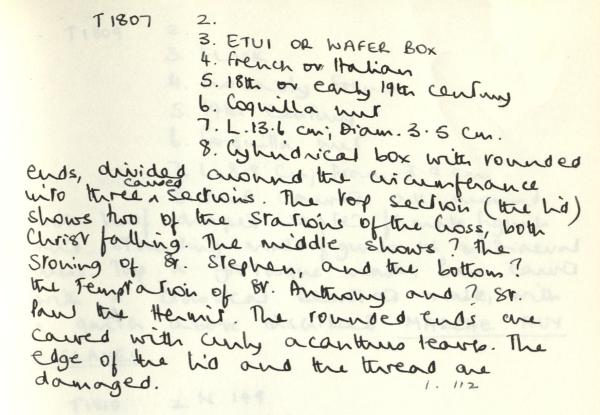 T1807 2.
3. ETUI OR WAFER BOX
4. French or Italian
5. 18th or early 19th century
6. Coquilla nut
7. L.13.6 cm; Diam. 3.5 cm.
8. Cylindrical box with rounded
ends, divided around the circumference
into three carved sections. The top section (the lid)
shows two of the Stations of the Cross, both
Christ falling. The middle shows ? The
Stoning of St. Stephen, and the bottom ?
the Temptation of St. Anthony and ? St.
Paul the Hermit. The rounded ends are
carved with curly acanthus leaves. The
edge of the lid and the thread are
damaged.